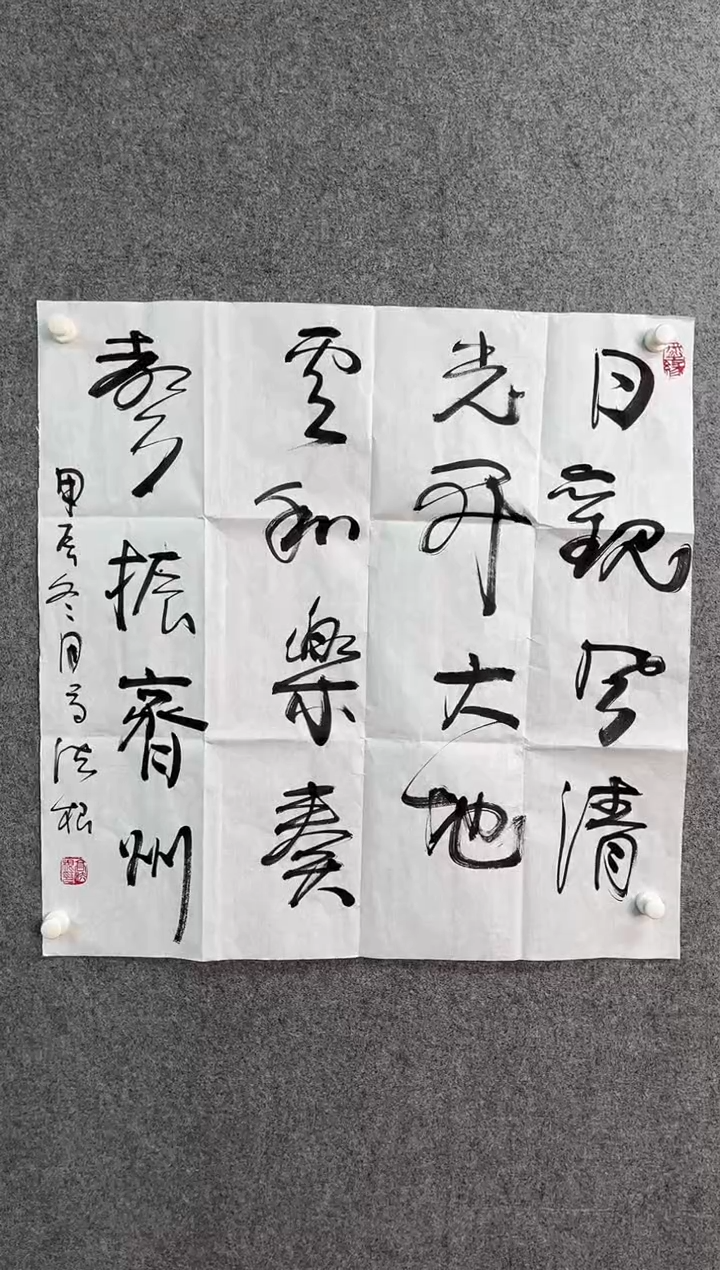 日觀風清
光開大地
雲和樂奏
聲振齊州
甲辰冬月高洪根